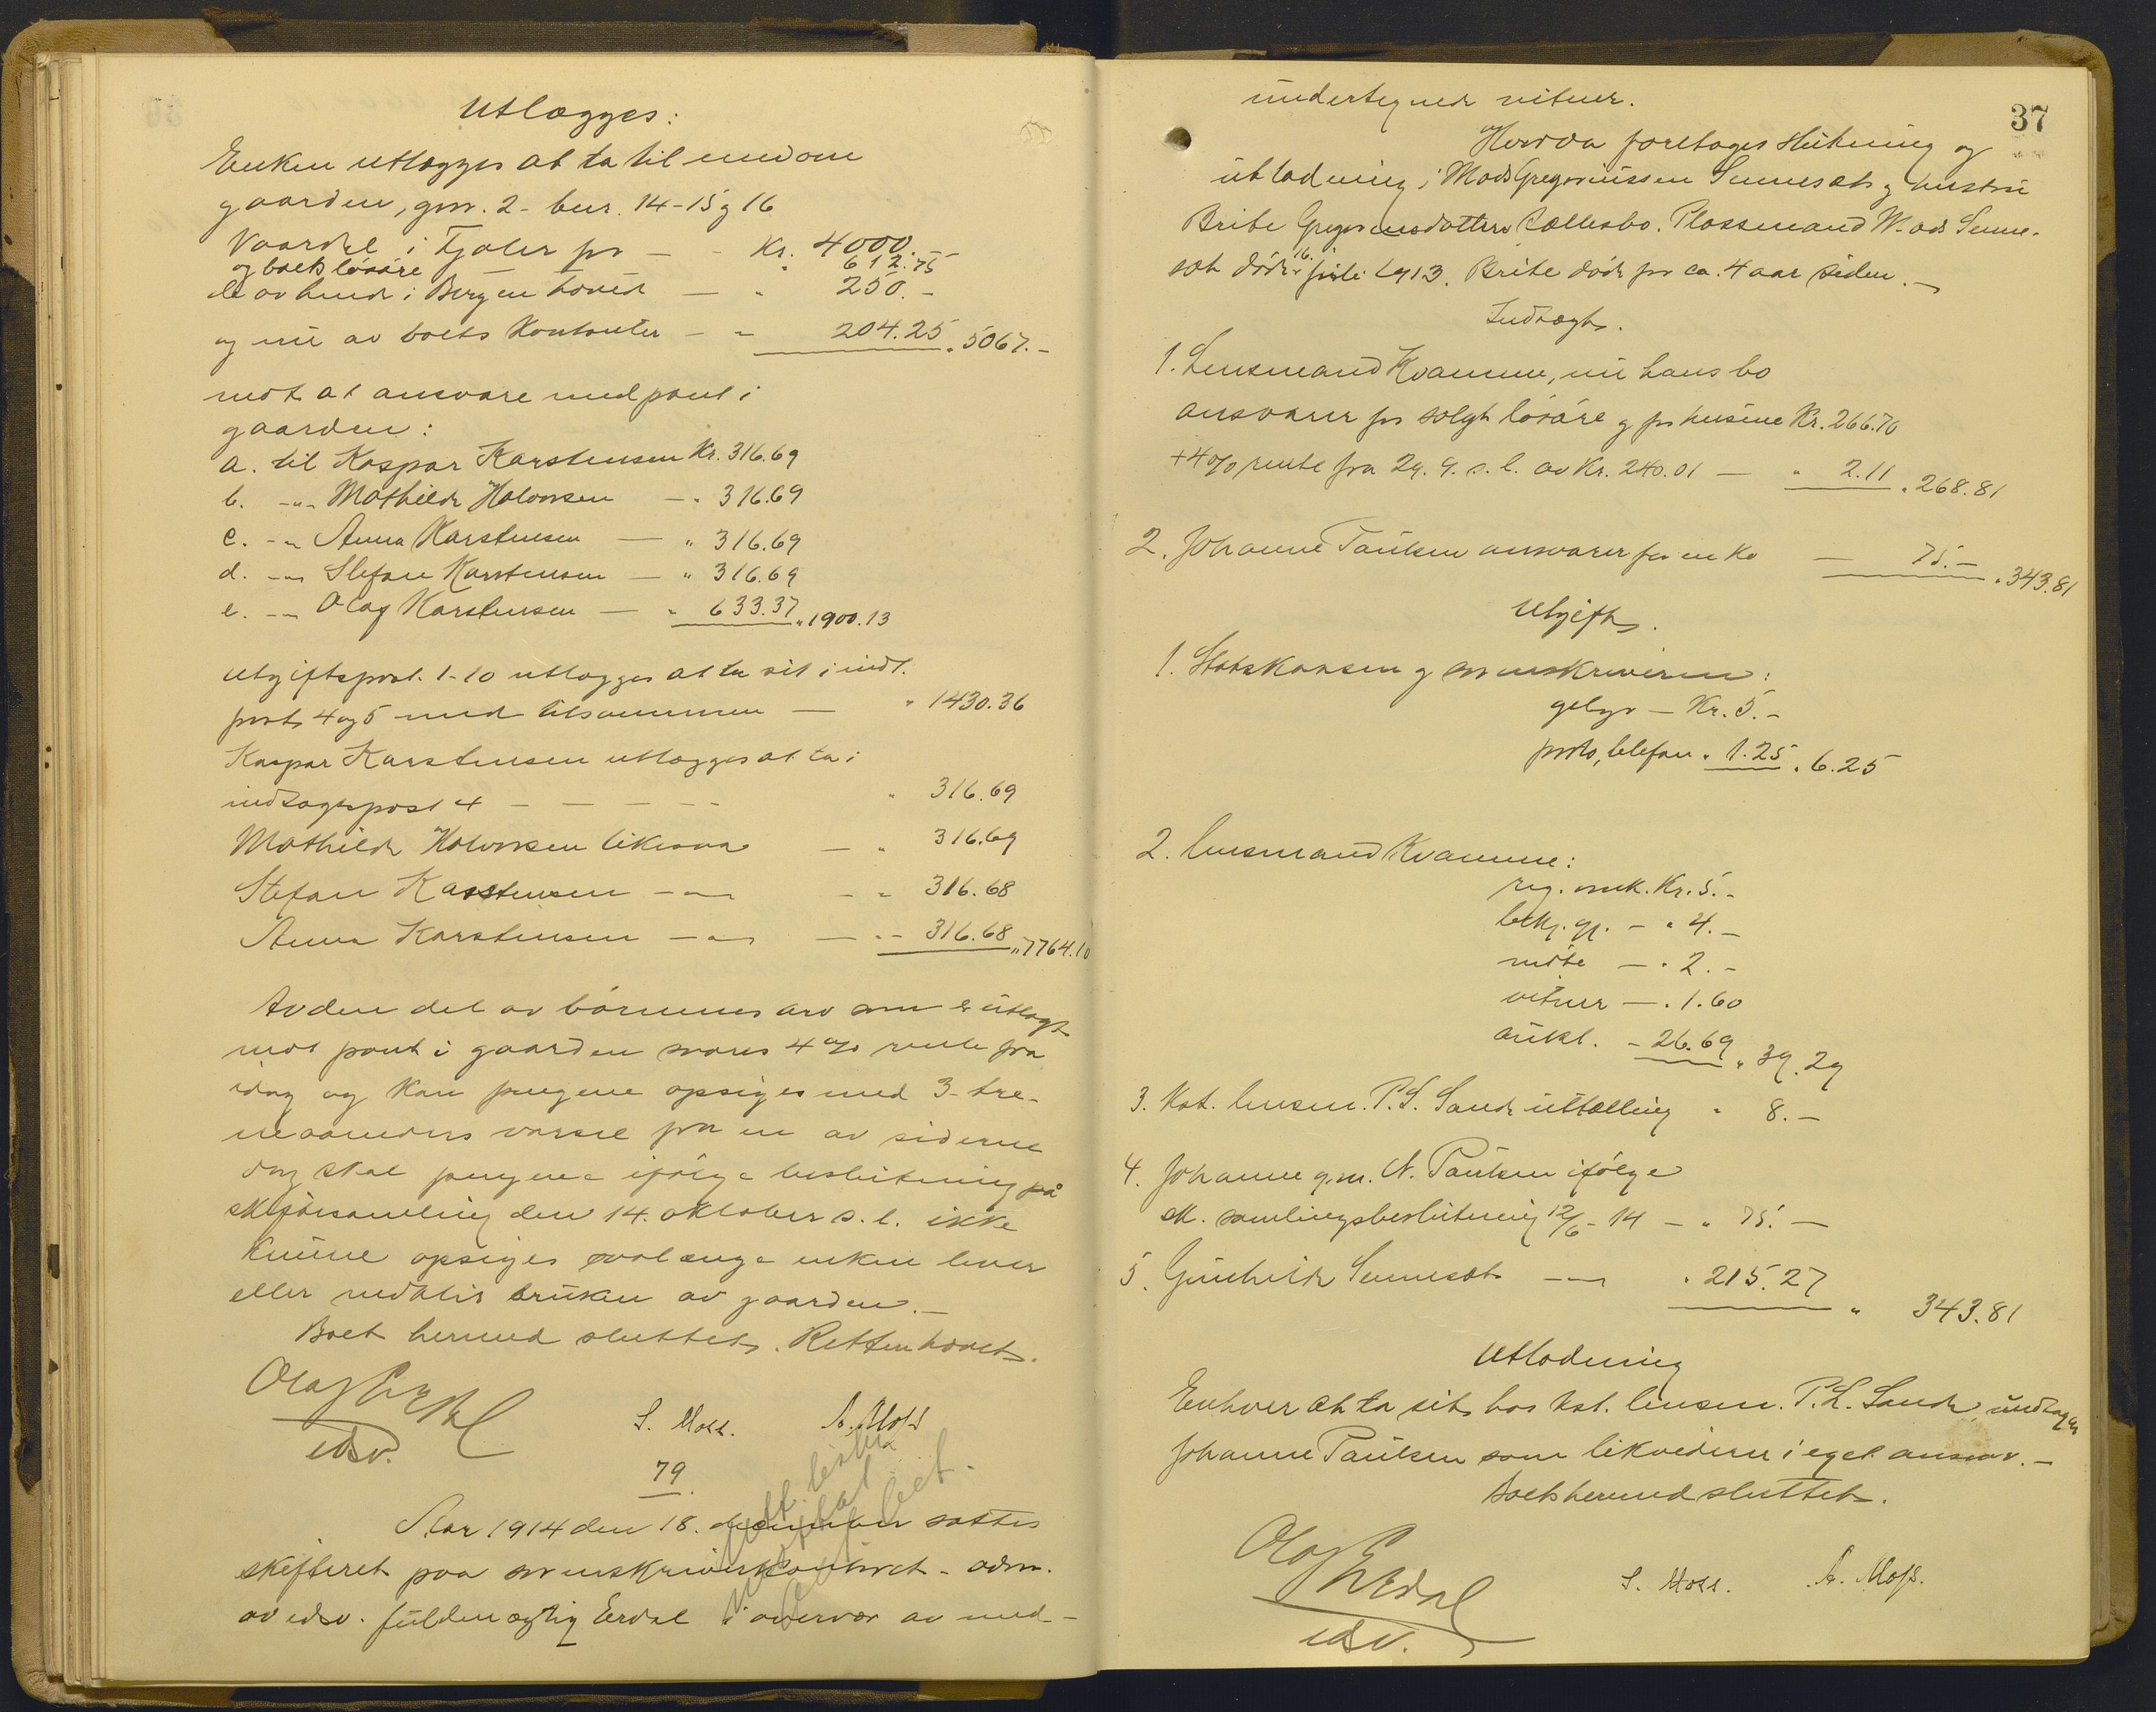 Utlægges:
Enken utlægges at ta til eiendom
gaarden, gnr. 2 - bnr. 14-15 og 16
Vaardal i Fjaler for — - Kr. 4000.-
og boets lösöre " 612.75
de av hende i Bergen hævede — " 250.-
og nu av boets Kontanter — " 204.25 " 5067.-
mot at ansvare med pant i
gaarden:
a. til Kaspar Karstensen Kr. 316.69
b. -"- Mathilde Halvorsen — " 316.69
c. -"- Anna Karstensen — " 316.69
d. -"- Stefan Karstensen — " 316.69
e. -"- Olag Karstensen — " 633.37 " 1900.13
Utgiftspost. 1-10 utlægges at ta sit i indt.
post 4 og 5 med tilsammen — " 1430.36
Kaspar Karstensen utlægges at ta i
indtægtspost 4 - - - - " 316.69
Mathilde Halvorsen likesaa — " 316.69
Stefan Karstensen -"- — " 316.68
Anna Karstensen -"- — " 316.68 " 7764.10
Av den del av börnenes arv som er utlagt
mot pant i gaarden svares 4 % rente fra
idag og kan pengene opsiges med 3- tre-
maaneders varsel fra en av siderne
dog skal pengene ifölge beslutning på
skiftesamling den 14. oktober s. l. ikke
kunne opsiges saalænge enken lever
eller vedblir bruken av gaarden.-
Boet hermed sluttet. Retten hævet.
Olaf Erdal
edsv.
S. Moss. A. Moss
79.
Aar 1914 den 18. december sattes
skifteret paa sorenskriverkontoret - adm.
av edsv. fuldmægtig Erdal i overvær av med-
37
undertegnede vitner.
Hvorda foretoges slutning og
utlodning i Mads Gregoriussen Sennesæt og hustru
Brite Gregoriusdatters Sællesbo. Plassmand Mads Senne-
sæt döde 16. juli 1913. Brite döde for ca. 4 aar siden.-
Indtægt.
1. Lensmand Kvamme, nu hans bo
ansvarer for solgt lösöre og for husene Kr. 266.70
+ 4% rente fra 29. 9. s. l. av Kr. 240.01 — " 2.11 " 268.81
2. Johanne Paulsen ansvarer for en ko — 75.- " 343.81
Utgift.
1. Statskassen og sorenskriveren:
gebyr — Kr. 5.-
porto, telefon " 1.25 " 6.25
2. Lensmand Kvamme:
reg. omk. Kr. 5.-
bekj. gj. - " 4.-
möte — " 2.-
vitner — " 1.60
aukt. - 26.69 " 39.29
3. Kst. lensm. P. S. Sande uttælling " 8.-
4. Johanne g. m. N. Paulsen ifölge
sk. samlingsbeslutning 12/6 - 14 — " 75.-
5. Gunhilde Sennesæt -"- " 215.27
" 343.81
Utlodning
Enhver at ta sit hos kst. lensm. P. L. Sande, undtagen
Johanne Paulsen som likviderer i eget ansvar.-
Boet hermed sluttet.
Olaf Erdal
edsv.
S. Moss. A. Moss.